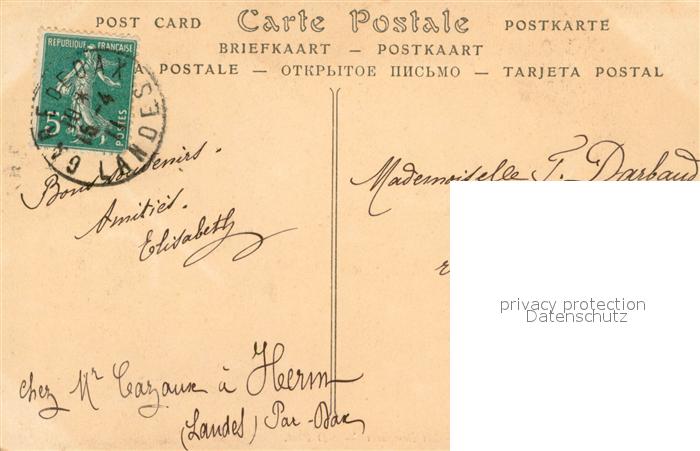 POST CARD Carte Postale POSTKARTE
BRIEFKAART — POSTKAART
POSTALE — ОТКРЫТОЕ ПИСЬМО — TARJETA POSTAL
REPUBLIQUE FRANÇAISE
5c
POSTES
GARE DE DAX
LANDES
Bons souvenirs.
Amitiés.
Elisabeth
Mademoiselle T. Darbaud
chez Mr Cazaux à Herm
(Landes) Par-Dax
privacy protection
Datenschutz